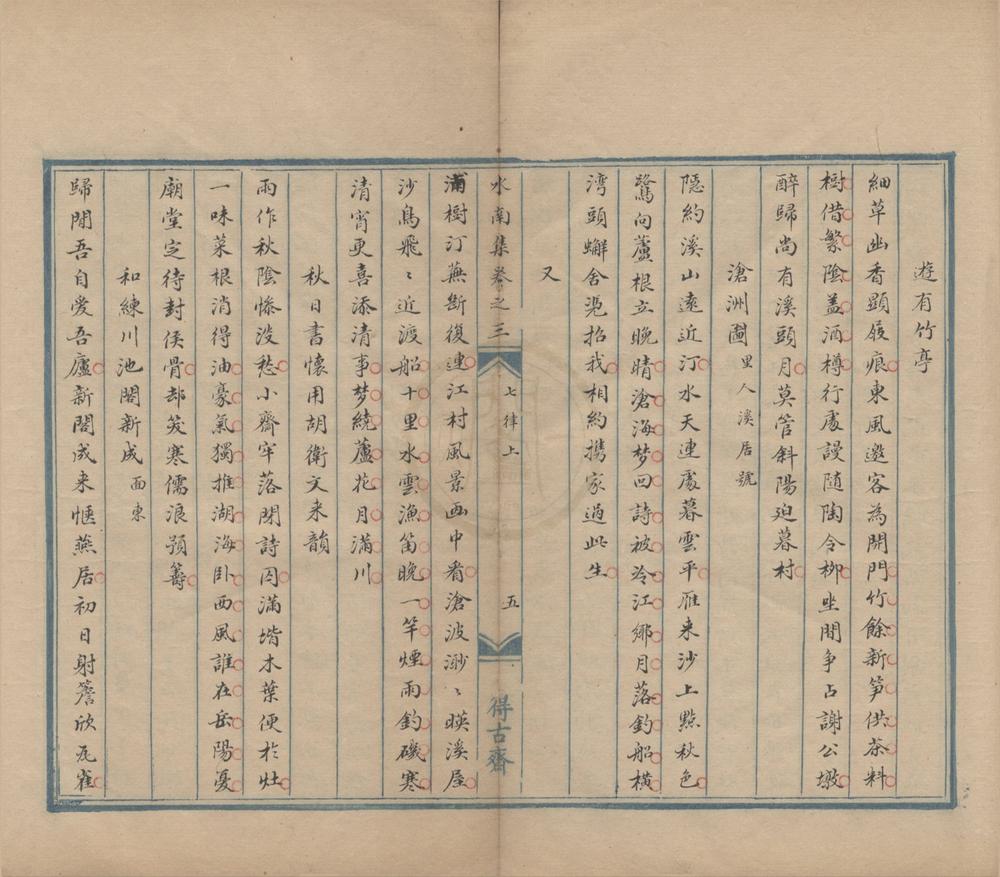 遊有竹亭
細草幽香顯屐痕東風邀客為開門竹餘新笋供茶料
樹借繁陰盖酒樽行處謾随陶令栁坐閒争占謝公墩
醉歸尚有溪頭月莫管斜陽廹暮村
滄洲圖里人溪居號
隱約溪山遠近汀水天連處暮雲平雁来沙上點秋色
鷺向蘆根立晚晴滄海梦回詩被冷江鄉月落釣船橫
湾頭蠏舍凴招我相約携家過此生
又
水南集卷之三 七律上 五 得古齋
浦樹汀蕪斷復連江村風景画中看滄波渺〻暎溪屋
沙鳥飛〻近渡船十里水雲漁笛晚一竿煙雨釣磯寒
清宵更喜添清事梦繞蘆花月滿川
秋日書懷用胡衛文来韻
雨作秋陰慘淡愁小齋牢落閉詩囚滿堦木葉便於灶
一味菜根消得油豪氣獨推湖海卧西風誰在岳陽憂
廟堂定待封侯骨却笑寒儒浪預籌
和練川池閣新成面東
歸閒吾自爱吾廬新閣成来愜燕居初日射簷欣瓦雀